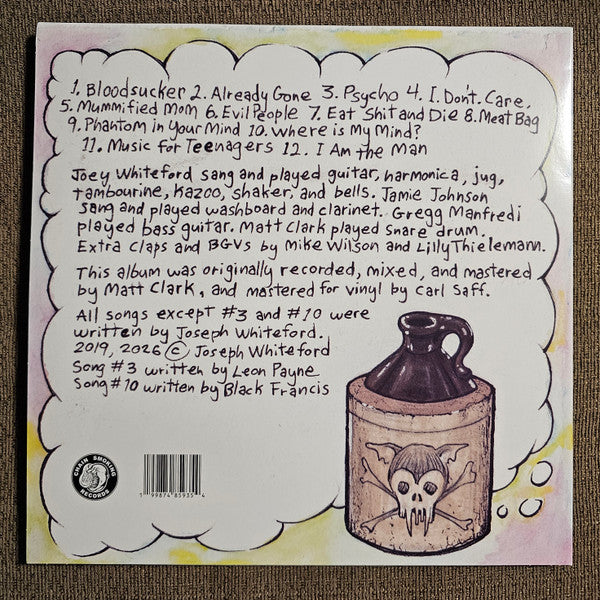 1. Bloodsucker 2. Already Gone 3. Psycho 4. I. Don't. Care.
5. Mummified Mom 6. Evil People 7. Eat Shit and Die 8. Meat Bag
9. Phantom in Your Mind 10. Where is My Mind?
11. Music for Teenagers 12. I Am the Man
Joey Whiteford sang and played guitar, harmonica, jug,
tambourine, kazoo, shaker, and bells. Jamie Johnson
sang and played washboard and clarinet. Gregg Manfredi
played bass guitar. Matt Clark played snare drum.
Extra Claps and BGVs by Mike Wilson and Lilly Thielemann.
This album was originally recorded, mixed, and mastered
by Matt Clark, and mastered for vinyl by Carl Saff.
All songs except #3 and #10 were
written by Joseph Whiteford.
2019, 2026 © Joseph Whiteford
Song #3 written by Leon Payne
Song #10 written by Black Francis
CHAIN SMOKING
RECORDS
1 99874 85935 4